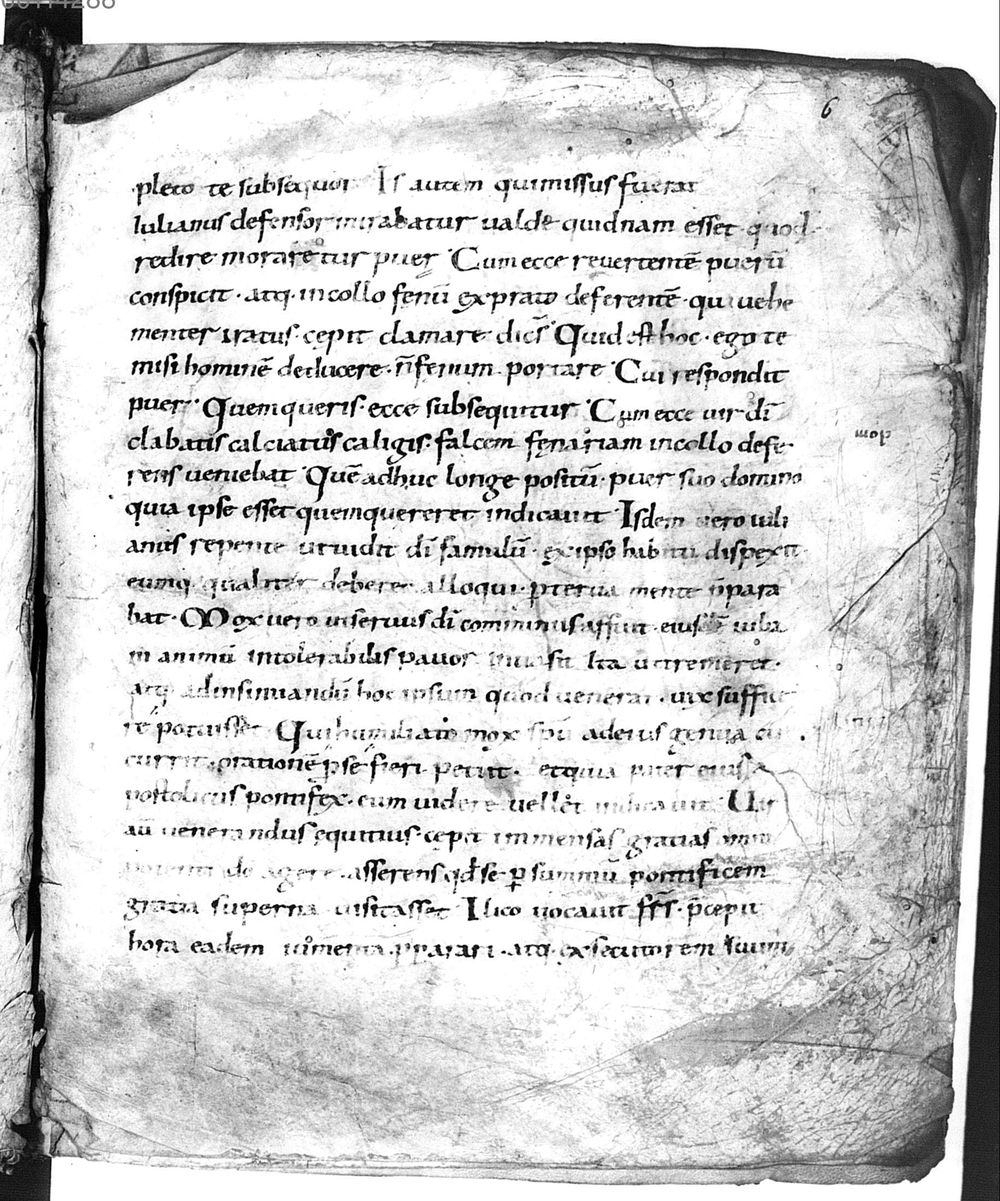 6
pleto te subsequor Is autem qui missus fuerat
Iulianus defensor mirabatur valde quidnam esset quod
redire moraretur puer Cum ecce revertentē puerū
conspicit · atq· in collo fenū ex prato deferentē · qui vehe
menter iratus · cępit clamare dicēs Quid est hoc · ego te
misi hominē deducere · n̄ fenum portare Cui respondit
puer Quem queris · ecce subsequitur Cum ecce vir dī
clabatis calciatus caligis · falcem fenariam in collo defe
rens veniebat Quē adhuc longe positū · puer suo domino
quia ipse esset quem quereret indicavit Isdem vero iuli
anus repente ut vidit dī famulū · ex ipso habitu dispexit ·
eumq· qualiter deberet alloqui · ꝓterva mente p̄para
bat · Mox vero ut servus dī comminus affuit · eius iulia
ni animū intolerabilis pavor invasit Ita ut tremeret ·
atq· ad insinuandū hoc ipsum quod venerat · vix suffice
re potuisset Qui humiliato mox spū ad eius genua
currit · orationē p se fieri petiit · et quia puer eius a
postolicus pontifex · eum videre vellet indicavit Vir
aū venerandus equitius · cępit immensas gratias omni
potenti dō agere · asserens qđ se ꝑ summū pontificem
gratia superna visitasset Ilico vocavit fr̄s · p̄cepit
hora eadem iumenta p̄parari · atq· exsecutorem suum